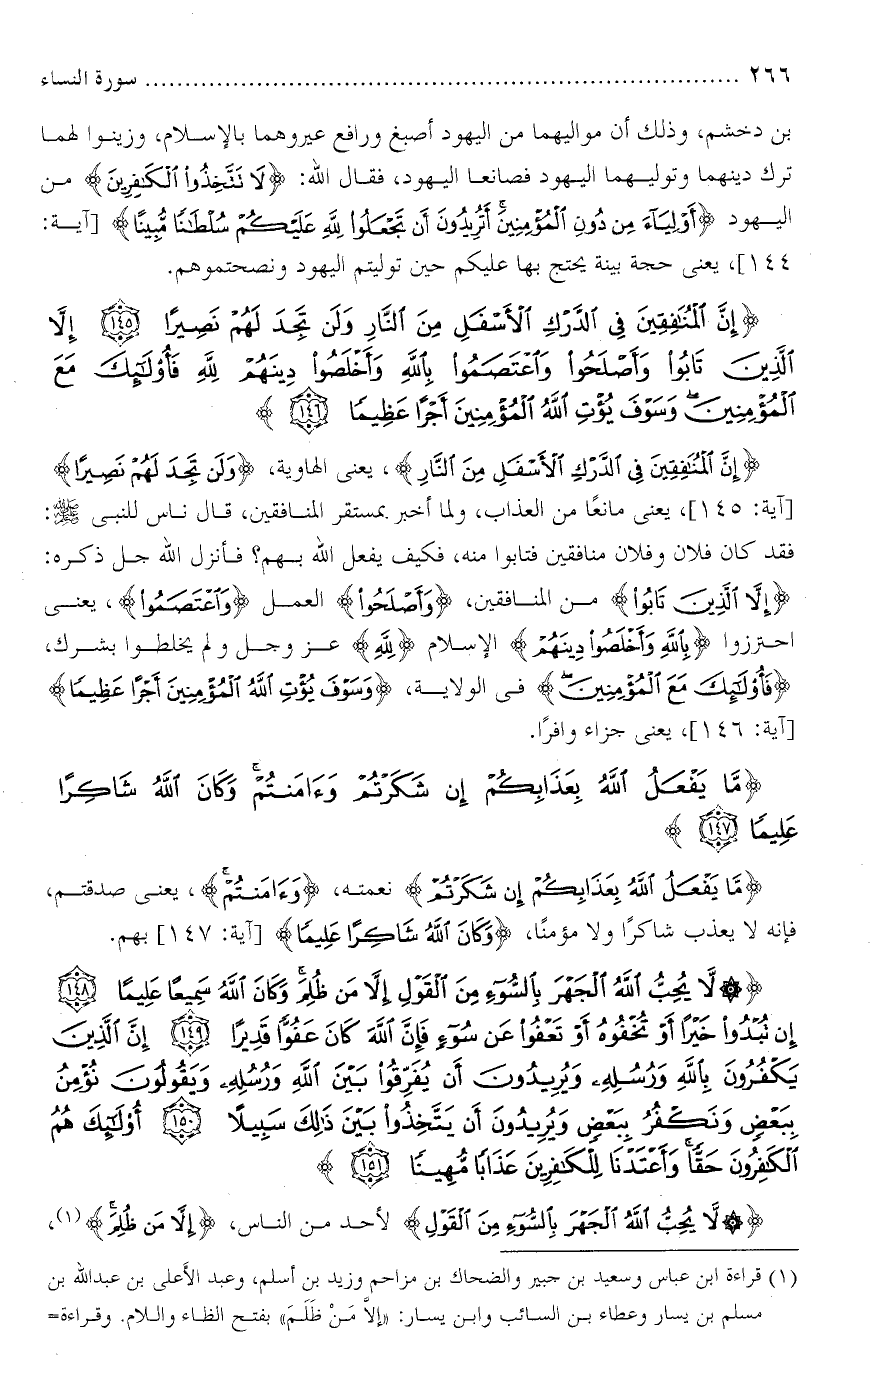 ٢٦٦ ........................................................................... سورة النساء
بن دخشم، وذلك أن مواليهما من اليهود أصبغ ورافع عيروهما بالإسلام، وزينوا لهما
ترك دينهما وتوليهما اليهود فصانعا اليهود، فقال الله: ﴿لَا تَتَّخِذُوا۟ ٱلْكَٰفِرِينَ﴾ من
اليهود ﴿أَوْلِيَآءَ مِن دُونِ ٱلْمُؤْمِنِينَ ۚ أَتُرِيدُونَ أَن تَجْعَلُوا۟ لِلَّهِ عَلَيْكُمْ سُلْطَٰنًا مُّبِينًا﴾ [آية:
١٤٤]، يعنى حجة بينة يحتج بها عليكم حين توليتم اليهود ونصحتموهم.
﴿إِنَّ ٱلْمُنَٰفِقِينَ فِى ٱلدَّرْكِ ٱلْأَسْفَلِ مِنَ ٱلنَّارِ وَلَن تَجِدَ لَهُمْ نَصِيرًا ١٤٥ إِلَّا
ٱلَّذِينَ تَابُوا۟ وَأَصْلَحُوا۟ وَٱعْتَصَمُوا۟ بِٱللَّهِ وَأَخْلَصُوا۟ دِينَهُمْ لِلَّهِ فَأُو۟لَٰٓئِكَ مَعَ
ٱلْمُؤْمِنِينَ ۖ وَسَوْفَ يُؤْتِ ٱللَّهُ ٱلْمُؤْمِنِينَ أَجْرًا عَظِيمًا ١٤٦ ﴾
﴿إِنَّ ٱلْمُنَٰفِقِينَ فِى ٱلدَّرْكِ ٱلْأَسْفَلِ مِنَ ٱلنَّارِ﴾، يعنى الهاوية، ﴿وَلَن تَجِدَ لَهُمْ نَصِيرًا﴾
[آية: ١٤٥]، يعنى مانعًا من العذاب، ولما أخبر بمستقر المنافقين، قال ناس للنبى ﷺ:
فقد كان فلان وفلان منافقين فتابوا منه، فكيف يفعل الله بهم؟ فأنزل الله جل ذكره:
﴿إِلَّا ٱلَّذِينَ تَابُوا۟﴾ من المنافقين، ﴿وَأَصْلَحُوا۟﴾ العمل ﴿وَٱعْتَصَمُوا۟﴾، يعنى
احترزوا ﴿بِٱللَّهِ وَأَخْلَصُوا۟ دِينَهُمْ﴾ الإسلام ﴿لِلَّهِ﴾ عز وجل ولم يخلطوا بشرك،
﴿فَأُو۟لَٰٓئِكَ مَعَ ٱلْمُؤْمِنِينَ ۖ﴾ فى الولاية، ﴿وَسَوْفَ يُؤْتِ ٱللَّهُ ٱلْمُؤْمِنِينَ أَجْرًا عَظِيمًا﴾
[آية: ١٤٦]، يعنى جزاء وافرًا.
﴿مَّا يَفْعَلُ ٱللَّهُ بِعَذَابِكُمْ إِن شَكَرْتُمْ وَءَامَنتُمْ ۚ وَكَانَ ٱللَّهُ شَاكِرًا
عَلِيمًا ١٤٧ ﴾
﴿مَّا يَفْعَلُ ٱللَّهُ بِعَذَابِكُمْ إِن شَكَرْتُمْ﴾ نعمته، ﴿وَءَامَنتُمْ ۚ﴾، يعنى صدقتم،
فإنه لا يعذب شاكرًا ولا مؤمنًا، ﴿وَكَانَ ٱللَّهُ شَاكِرًا عَلِيمًا﴾ [آية: ١٤٧] بهم.
﴿۞ لَّا يُحِبُّ ٱللَّهُ ٱلْجَهْرَ بِٱلسُّوٓءِ مِنَ ٱلْقَوْلِ إِلَّا مَن ظُلِمَ ۚ وَكَانَ ٱللَّهُ سَمِيعًا عَلِيمًا ١٤٨
إِن تُبْدُوا۟ خَيْرًا أَوْ تُخْفُوهُ أَوْ تَعْفُوا۟ عَن سُوٓءٍ فَإِنَّ ٱللَّهَ كَانَ عَفُوًّا قَدِيرًا ١٤٩ إِنَّ ٱلَّذِينَ
يَكْفُرُونَ بِٱللَّهِ وَرُسُلِهِۦ وَيُرِيدُونَ أَن يُفَرِّقُوا۟ بَيْنَ ٱللَّهِ وَرُسُلِهِۦ وَيَقُولُونَ نُؤْمِنُ
بِبَعْضٍ وَنَكْفُرُ بِبَعْضٍ وَيُرِيدُونَ أَن يَتَّخِذُوا۟ بَيْنَ ذَٰلِكَ سَبِيلًا ١٥٠ أُو۟لَٰٓئِكَ هُمُ
ٱلْكَٰفِرُونَ حَقًّا ۚ وَأَعْتَدْنَا لِلْكَٰفِرِينَ عَذَابًا مُّهِينًا ١٥١ ﴾
﴿۞ لَّا يُحِبُّ ٱللَّهُ ٱلْجَهْرَ بِٱلسُّوٓءِ مِنَ ٱلْقَوْلِ﴾ لأحد من الناس، ﴿إِلَّا مَن ظُلِمَ ۚ﴾(١)،
(١) قراءة ابن عباس وسعيد بن جبير والضحاك بن مزاحم وزيد بن أسلم، وعبد الأعلى بن عبدالله بن
مسلم بن يسار وعطاء بن السائب وابن يسار: «إلاَّ مَنْ ظَلَمَ» بفتح الظاء واللام. وقراءة=